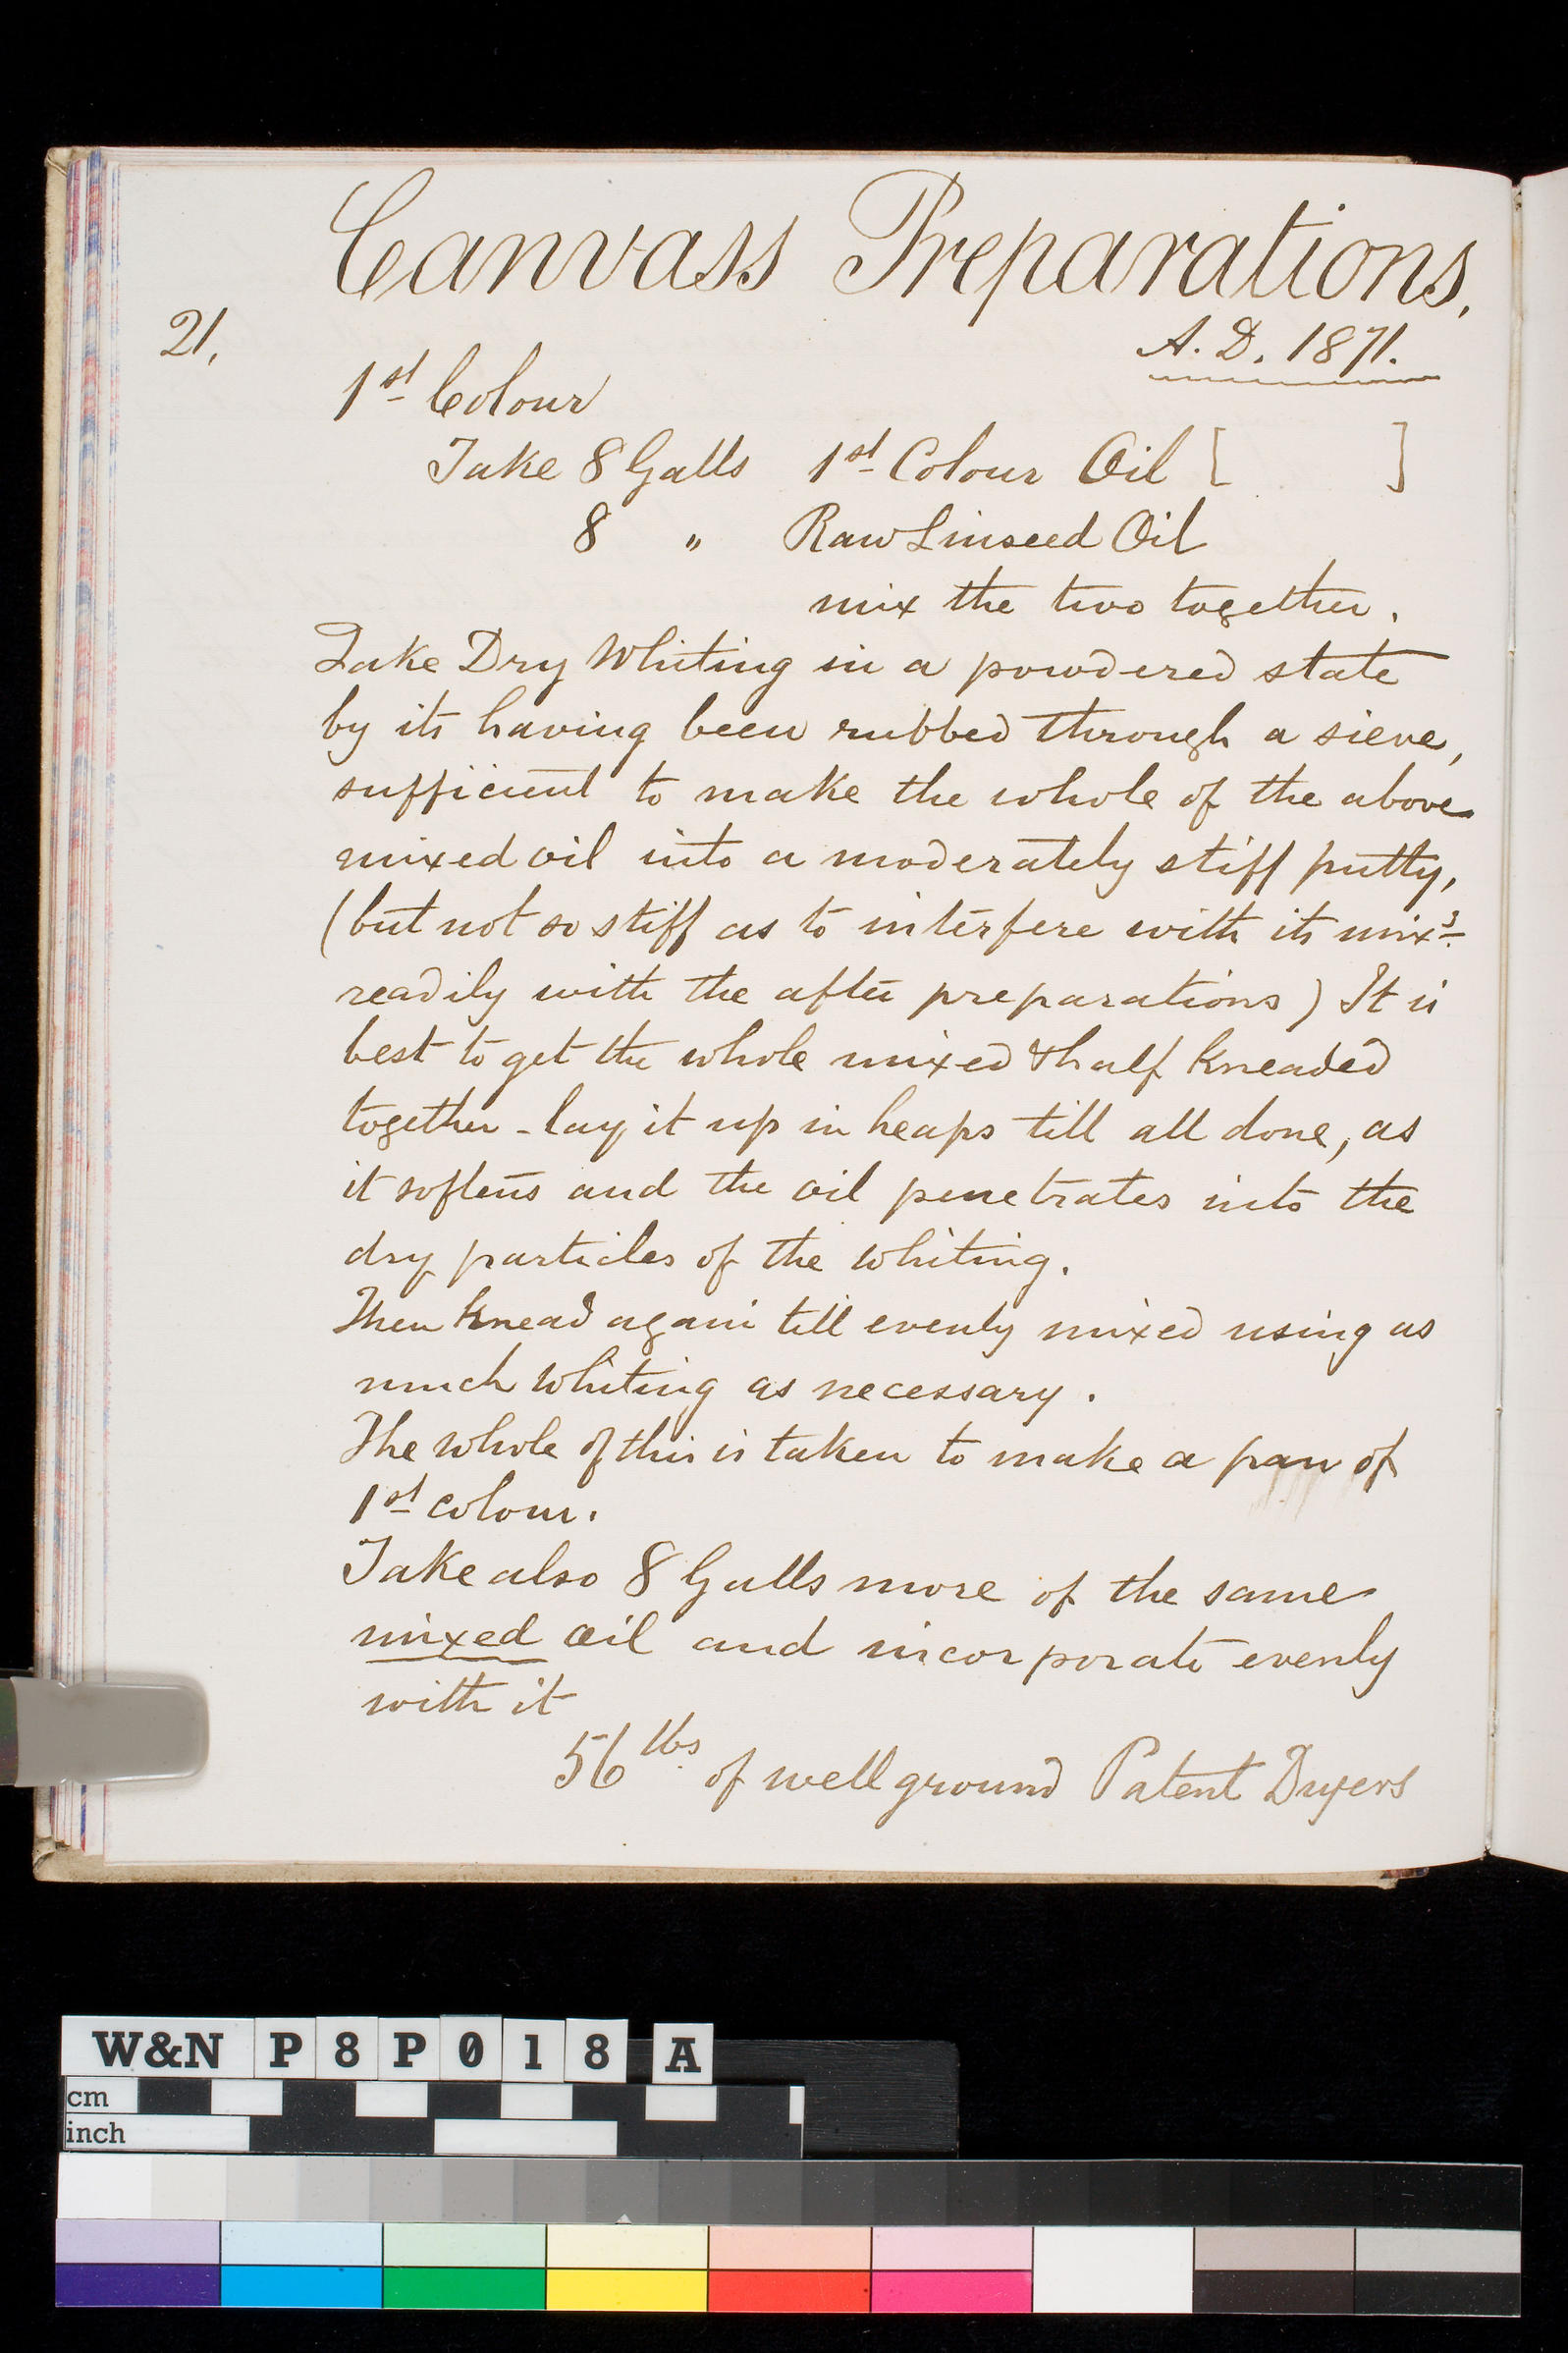 Canvass Preparations,
21,
A.D. 1871.
1st Colour
Take 8 Galls 1st Colour Oil [ ]
8 " Raw Linseed Oil
mix the two together.
Take Dry Whiting in a powdered state
by its having been rubbed through a sieve,
sufficient to make the whole of the above
mixed oil into a moderately stiff putty,
(but not so stiff as to interfere with its mixg
readily with the after preparations) It is
best to get the whole mixed & half kneaded
together - lay it up in heaps till all done, as
it softens and the oil penetrates into the
dry particles of the whiting.
Then knead again till evenly mixed using as
much whiting as necessary.
The whole of this is taken to make a pan of
1st colour.
Take also 8 Galls more of the same
mixed oil and incorporate evenly
with it
56 lbs of well ground Patent Dryers
W&N P8P018 A
cm
inch